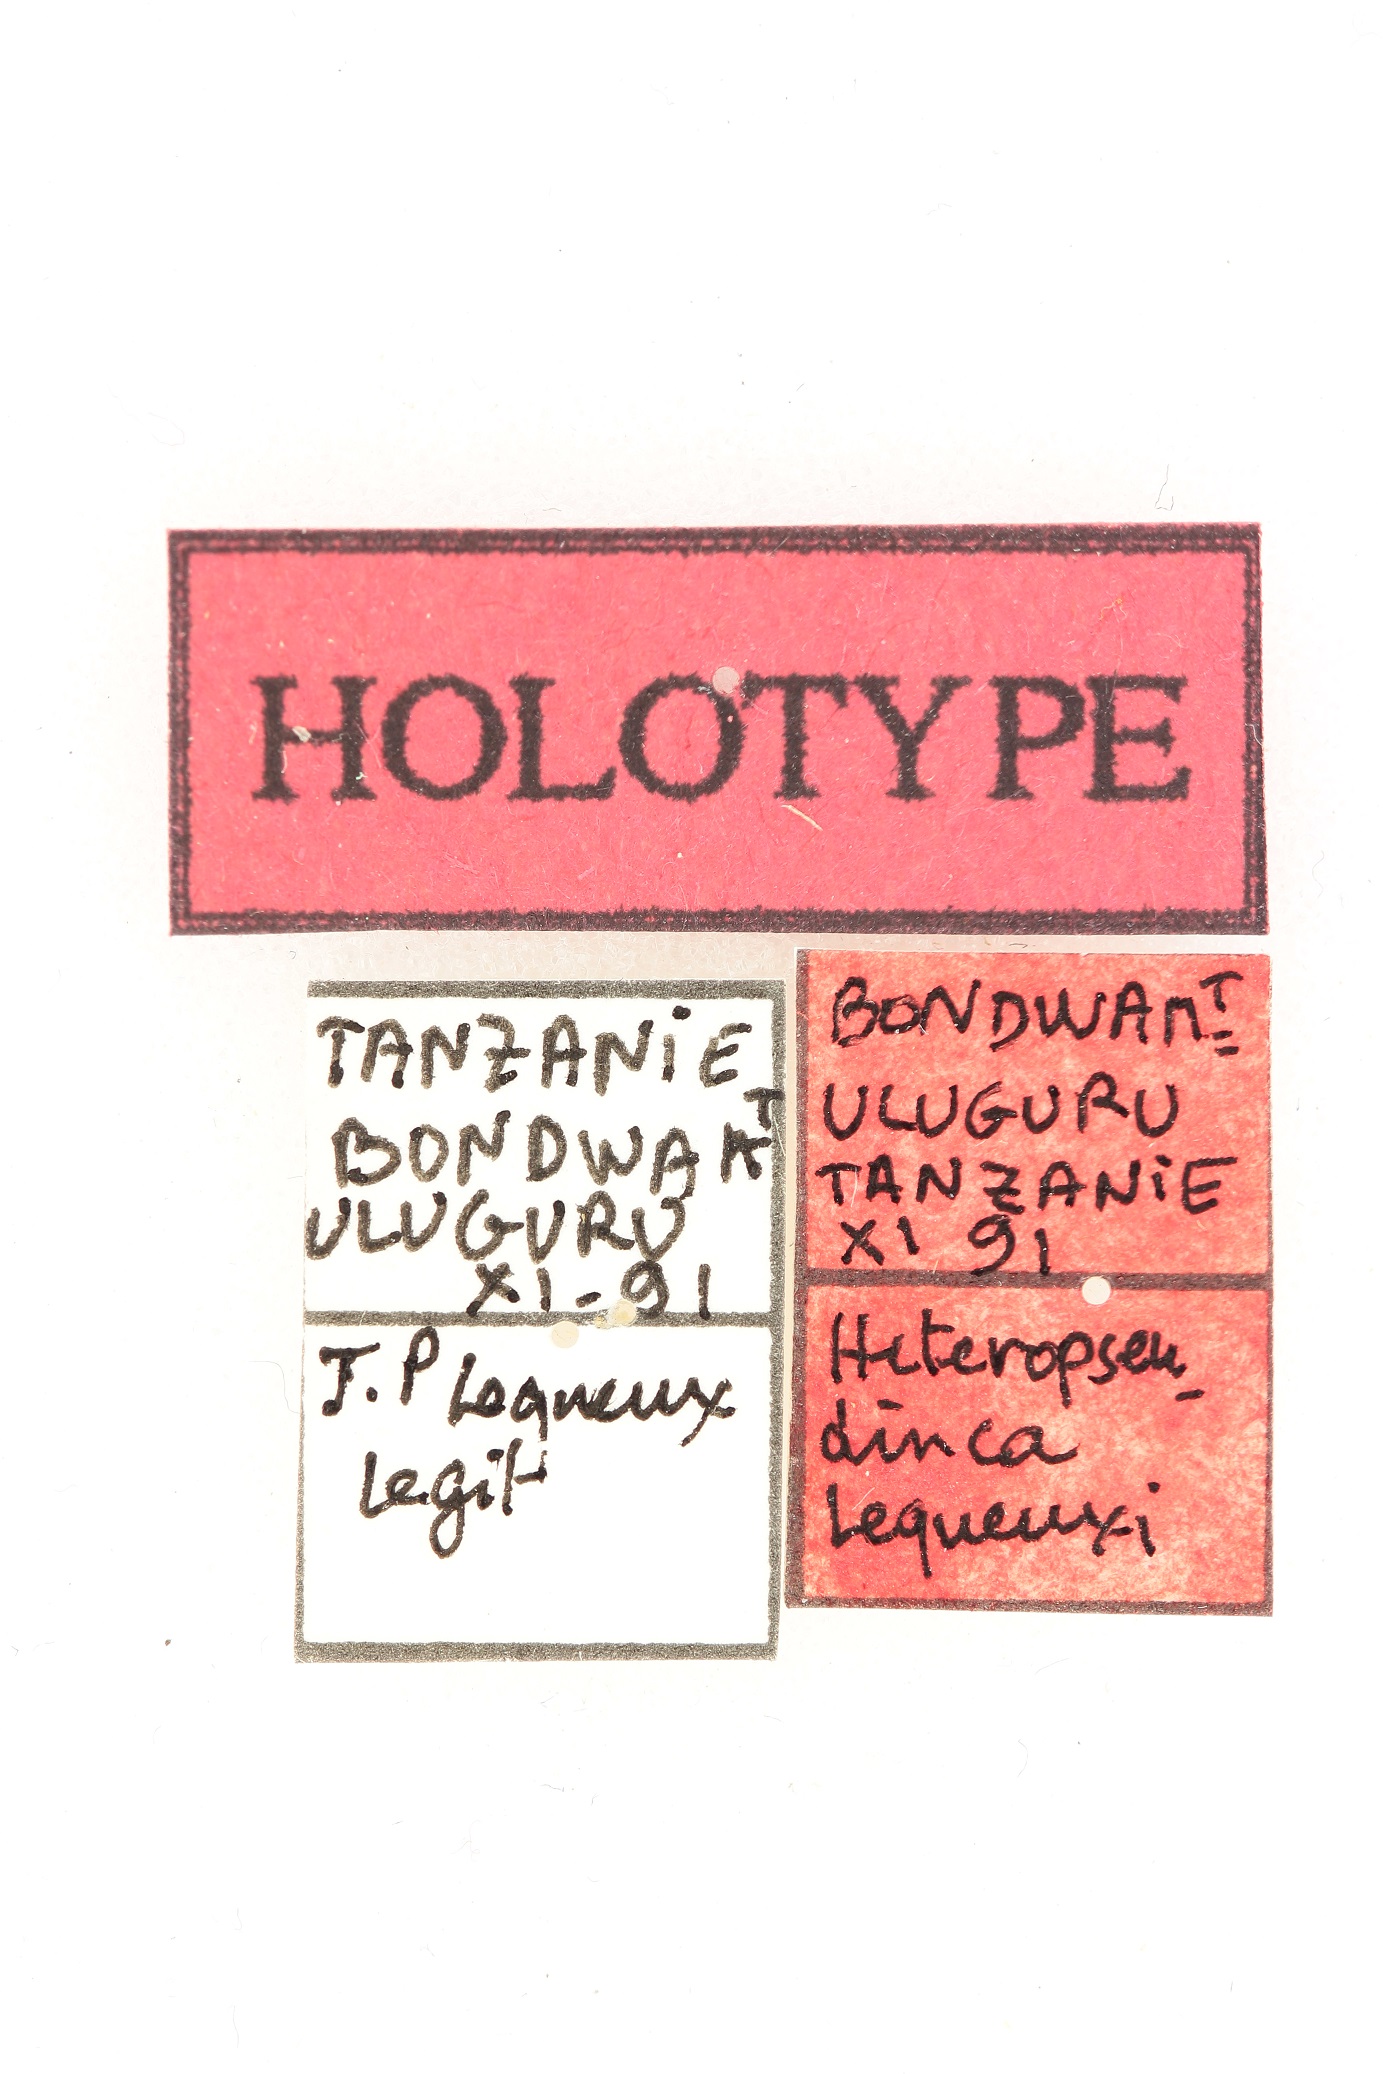 HOLOTYPE
TANZANiE
BONDWA MT
ULUGURU
XI-91
J.P Lequeux
Legit
BONDWA MT
ULUGURU
TANZANiE
XI 91
Heteropseu-
dinca
Lequeuxi